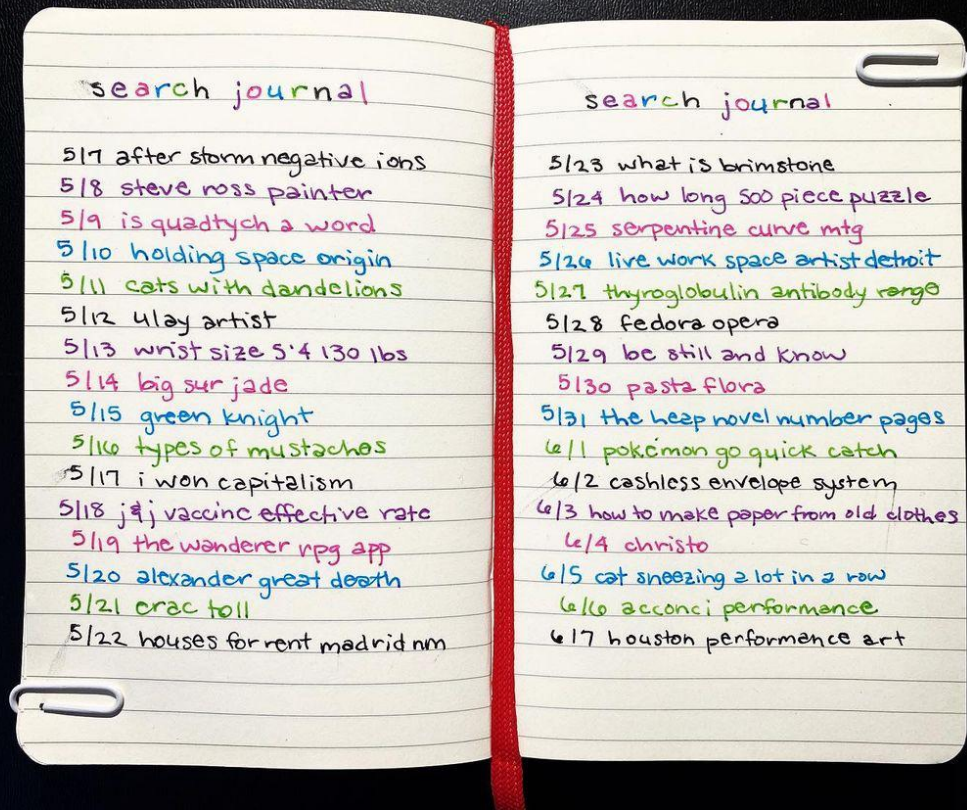 search journal
5/7 after storm negative ions
5/8 steve ross painter
5/9 is quadtych a word
5/10 holding space origin
5/11 cats with dandelions
5/12 ulay artist
5/13 wrist size 5'4 130 lbs
5/14 big sur jade
5/15 green knight
5/16 types of mustaches
5/17 i won capitalism
5/18 j&j vaccine effective rate
5/19 the wanderer rpg app
5/20 alexander great death
5/21 erac toll
5/22 houses for rent madrid nm
search journal
5/23 what is brimstone
5/24 how long 500 piece puzzle
5/25 serpentine curve mtg
5/26 live work space artist detroit
5/27 thyroglobulin antibody range
5/28 fedora opera
5/29 be still and know
5/30 pasta flora
5/31 the heap novel number pages
6/1 pokémon go quick catch
6/2 cashless envelope system
6/3 how to make paper from old clothes
6/4 christo
6/5 cat sneezing a lot in a row
6/6 acconci performance
6/7 houston performance art